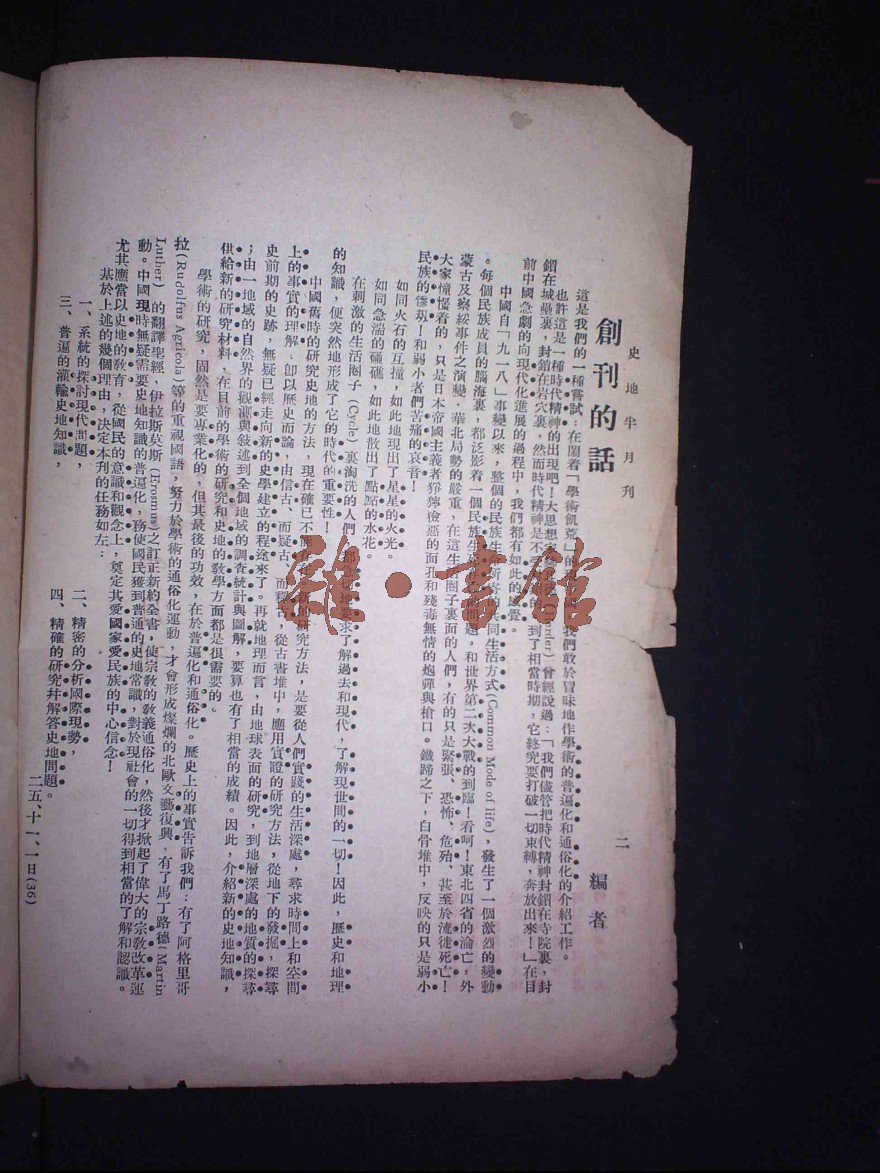 史地半月刊
二
創刊的話
編者
這是我們的一種嘗試：在鬧着「學術飢荒」的 我們敢於冒昧地作學術的普遍化和通俗化的介紹工作。
也許這是一種時代精神的出現吧！大思想 曾經說過：「我們儘管把時代精神封鎖在寺院裏，封
鎖在城壘裏，封鎖在岩穴裏，然而時代精神是不 的，到了相當時期，它終究要打破一切束縛，奔放出來！」在目
前中國急劇的向現代化進展的過程中，我們都有如此的感覺。
中國自「九一八」事變以來，整個的民族生 共同生活方式(Common Mode of life)，發生了一個激烈的變動
。每個民族成員的腦海裏，都泛影着一個民族生 問題，和世界第二次大戰的到臨！看呵！東北四省的淪亡，外
蒙古及察綏事件之演變，華北局勢的嚴重，在這生活圈子裏面的人們，有的只是緊張、恐怖、危殆、甚至於流徙死亡！
大家憧憬着的，只是日本帝國主義者猙獰險惡的面孔和殘毒無情的炮彈與槍口。鐵蹄之下，白骨堆中，反映的只是弱小
民族的慘刼！和弱小者們苦痛的哀音！
如同火石的互撞，如此地現出了星星的火光。
如同急湍的礴礁，如此地散出了點點的水花。
在刺激的生活圈子(Cycle)裏淘洗的人們， 地要求了解過去和現代，了解現世間的一切！因此，歷史和地理
的知識，便突然地形成了它的時代的重要性！
中國舊時的研究史地的方法，現在確已不能 新的研究方法，是要從人們實踐的生活深處，尋求時間上和空間
上的事實的理解，卽以歷史而論，由信古、而疑古、而釋古，從古書堆中，應用實證的研究方法，從地下的發掘，探尋
史前期的史跡，無疑已經走向新的史學建立的程途來了。再就地理而言，由地球表面的研究，到地層深處的地質的探尋
；由一地域的自然界的觀測與敍述到全個地域的調查統計與圖解，要算也有了相當的成績。因此，介紹新的史地知識，
供給新的研究材料，在目前的學術的研究和史地的敎學方面都是很需要的。
學術的研究，固然是要專業化的，但其最後的功效，在於普遍化和通俗化。歷史上的事實告訴我們：有了阿格里哥
拉(Rudolfus Agricola)等的重視國語，努力於學術的通俗化運動，才會形成燦爛的北歐文藝復興，有了馬丁路德(Martin
Luther)的翻譯聖經，伊拉斯莫斯(Erosmus)之訂正新約全書，使宗敎的敎義通俗化，然後才掀起了偉大的宗敎改革運
動。中國現時無疑需要史地知識的普遍化，務使國民獲到普通的史地常識，對於現社會的一切得到相當的了解和認識。
尤其應當以史地的敎育，從國民的意識和觀念上，奠定其愛國家愛民族的中心信念！
基於上述的幾個理由，決定本刊的任務如左：
一、系統的探討現代問題，
二、精密的分析國際現勢，
三、普遍的灌輸史地知識，
四、精確的研究并解答史地問題。
二五、十一、一日(36)
雜·書館